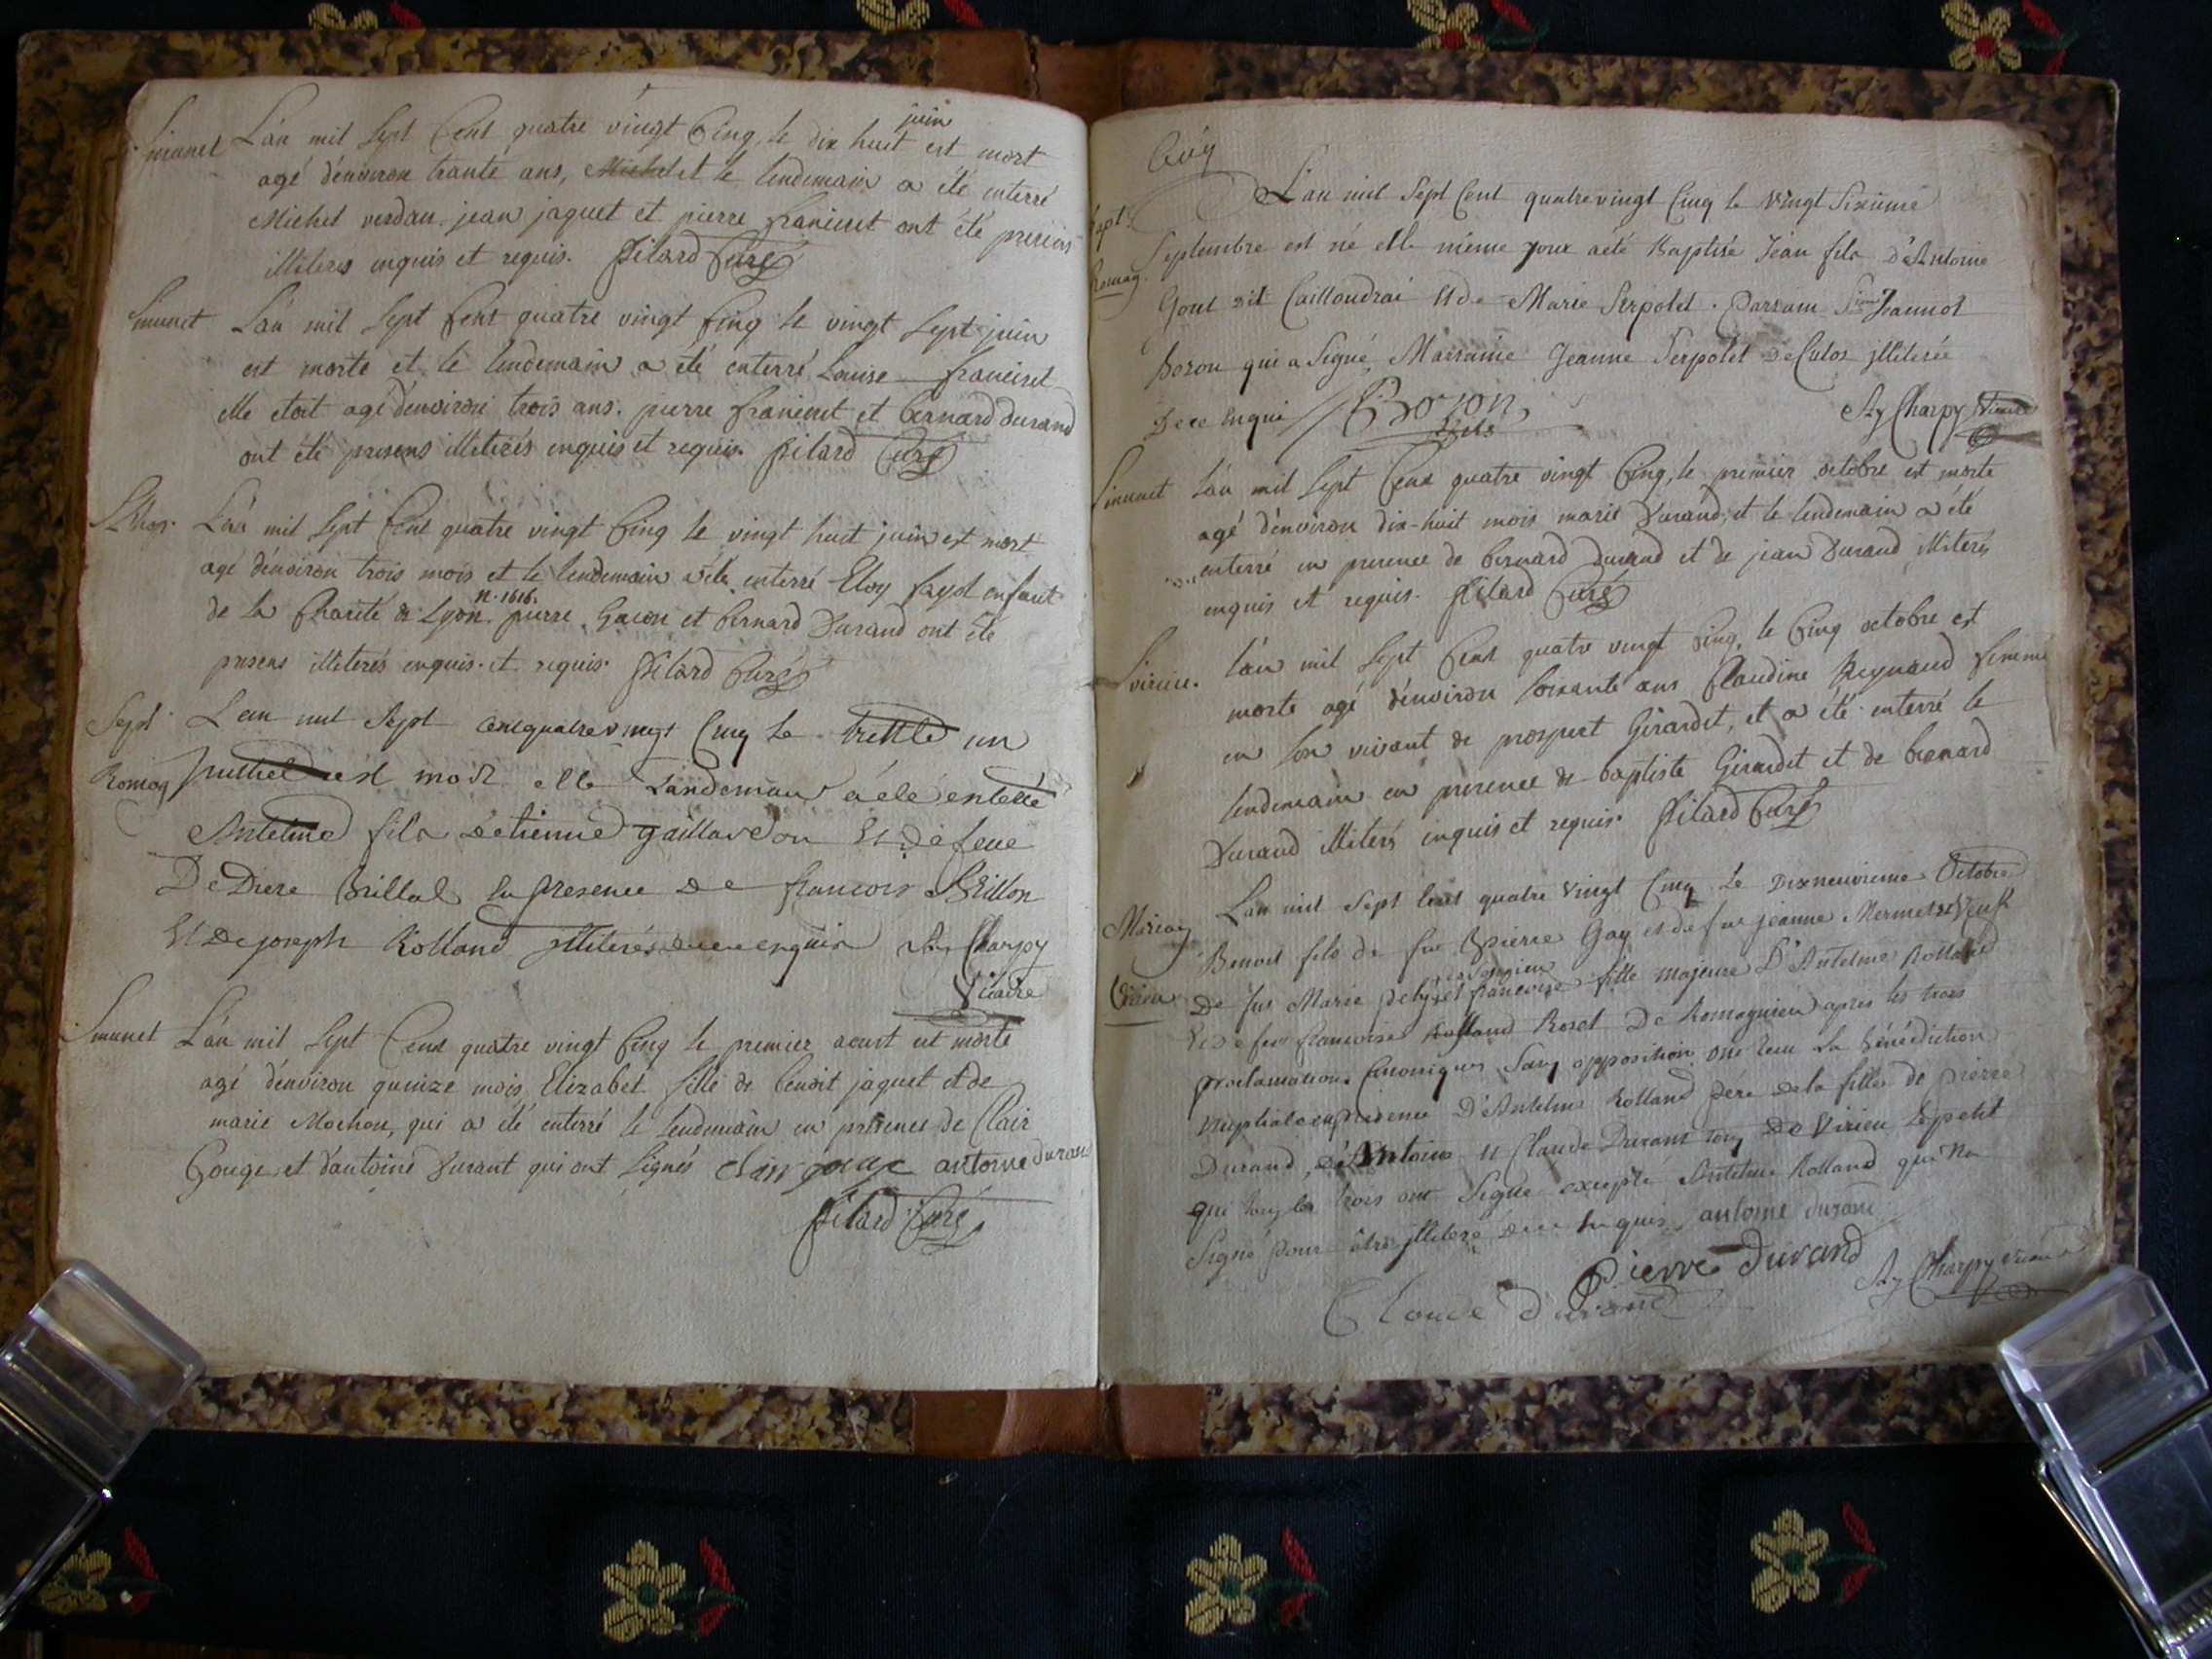 L'an mil sept Cent quatre vingt Cinq, le dix huit juin est mort
agé d'environ trante ans, et le lendemain a été enterré
Michel verdau. jean jaquet et pierre franieut ont été presens
illiteres enquis et requis. Pilard Curé
L'an mil sept Cent quatre vingt Cinq le vingt sept juin
est morte et le lendemain a été enterré Louise
elle etoit agé d'environ trois ans. pierre et bernard durand
ont été presens illiterés enquis et requis. Pilard Curé
L'an mil sept Cent quatre vingt Cinq le vingt huit juin est mort
agé d'environ trois mois et le lendemain a été enterré Eloy fayol enfant
de la Charité de Lyon. n. 1616. pierre et bernard Durand ont été
presens illiterés enquis et requis. Pilard Curé
Sept L'an mil sept cent quatre vingt Cinq le trentte un
Romag juilliet est mort et le Landemain a été enterré
Antelme fils d'etienne gaillardon Et de feue
Brillat En presence de francois
Et de joseph Rolland illiterés de ce enquis Charpy
Vicaire
L'an mil sept Cent quatre vingt Cinq le premier aoust est morte
agé d'environ quinze mois, Elizabet fille de benoit jaquet et de
marie Mochon, qui a été enterré le lendemain en presence de Clair
Gouge et d'antoine Durant qui ont signés clair gouge antoine durand
Pilard Curé
L'an mil sept Cent quatre vingt Cinq le vingt sixieme
Septembre est né et le même jour a été Baptisé Jean fils d'Antoine
Romag. Gout dit Et de Marie Serpolet. Parrain Jeannot
Bozon qui a signé, Marraine Jeanne Serpolet de Culoz illiterée
De ce Enquis Bozon Charpy Vicaire
fils
L'an mil sept Cent quatre vingt Cinq, le premier octobre est morte
agé d'environ dix-huit mois marie Durand, et le lendemain a été
enterré en presence de bernard Durand et de jean Durand illiterés
enquis et requis. Pilard Curé
L'an mil sept Cent quatre vingt Cinq, le Cinq octobre est
morte agé d'environ soixante ans Claudine Reynaud femme
en son vivant de prospert Girardet, et a été enterré le
lendemain en presence de baptiste Girardet et de bernard
Durand illiterés enquis et requis. Pilard Curé
L'an mil sept Cent quatre vingt Cinq Le Dixneuvieme Octobre
Mariag Benoit fils de feu pierre Gay et de feue jeanne Mermet Veuf
De feue Marie et francoise fille majeure D'Antelme Rolland
Et De feue francoise Roset De Romagnieu apres les trois
proclamations Canoniques Sans opposition ont recu La bénédiction
nuptiale en presence D'Antelme Rolland pere de la fille de pierre
Durand, d'Antoine et Claude Durant tous De Virieu Lepetit
qui tous les trois ont Signé excepté Antelme Rolland qui N'a
Signé pour être illiteré de ce Enquis, antoine durand
Pierre Durand
Claude durand Charpy vicaire